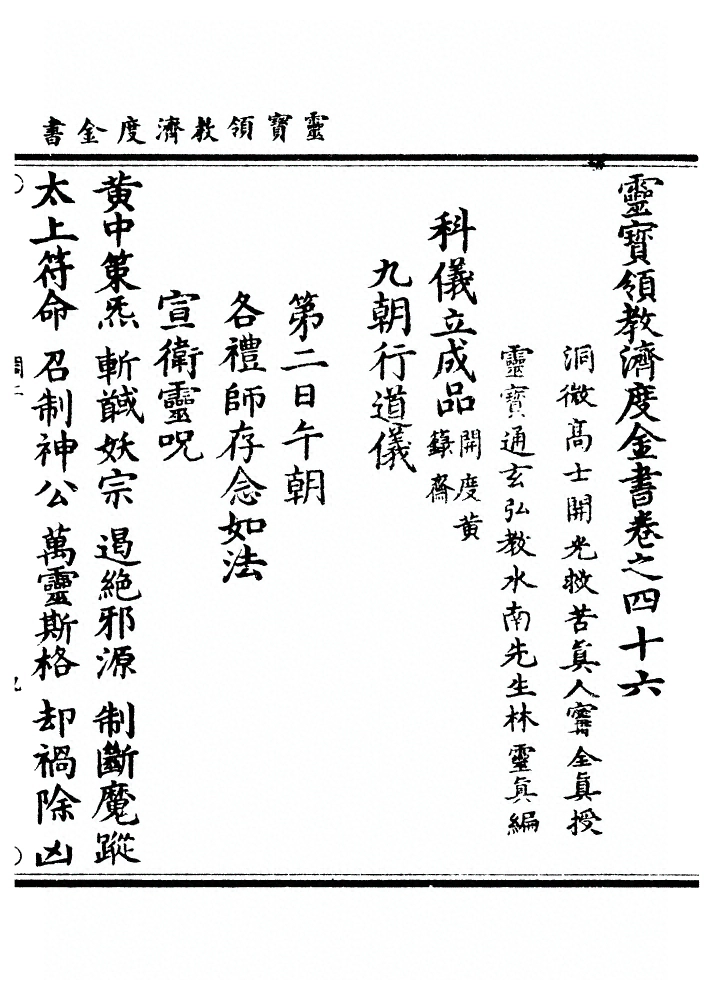 靈寶領教濟度金書
靈寶領教濟度金書卷之四十六
洞微高士開光救苦眞人寗全眞授
靈寶通玄弘教水南先生林靈眞編
科儀立成品開度黃籙齋
九朝行道儀
第二日午朝
各禮師存念如法
宣衛靈呪
黃中策炁 斬馘妖宗 遏絕邪源 制斷魔蹤
太上符命 召制神公 萬靈斯格 却禍除凶